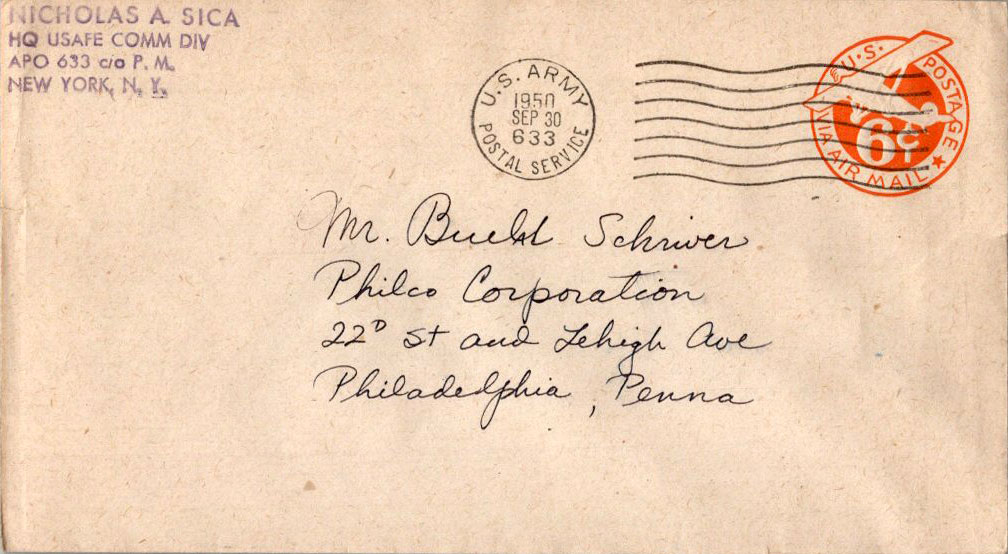 NICHOLAS A. SICA
HQ USAFE COMM DIV
APO 633 c/o P. M.
NEW YORK, N. Y.
U.S. ARMY
1950
SEP 30
633
POSTAL SERVICE
U.S. POSTAGE
6¢
VIA AIR MAIL
Mr. Schriver
Philco Corporation
22D St and Lehigh Ave
Philadelphia, Penna